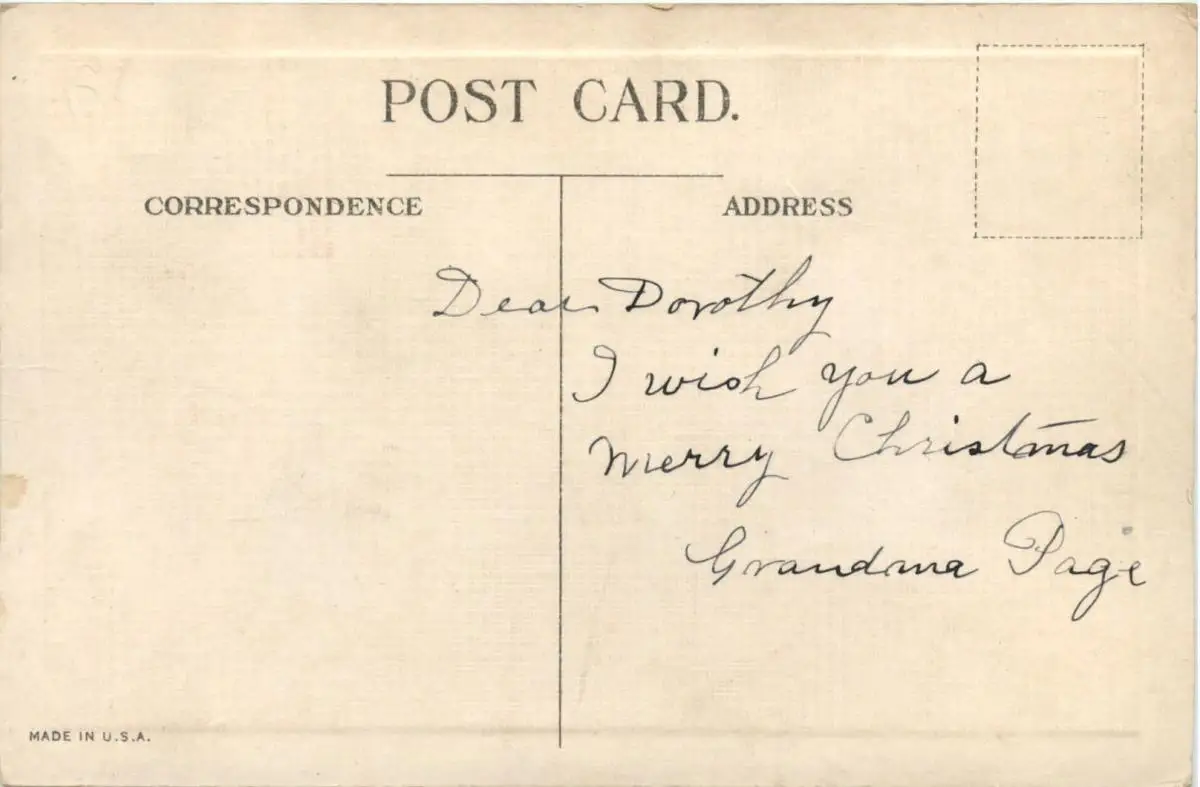 POST CARD.
CORRESPONDENCE
ADDRESS
Dear Dorothy
I wish you a
Merry Christmas
Grandma Page
MADE IN U.S.A.